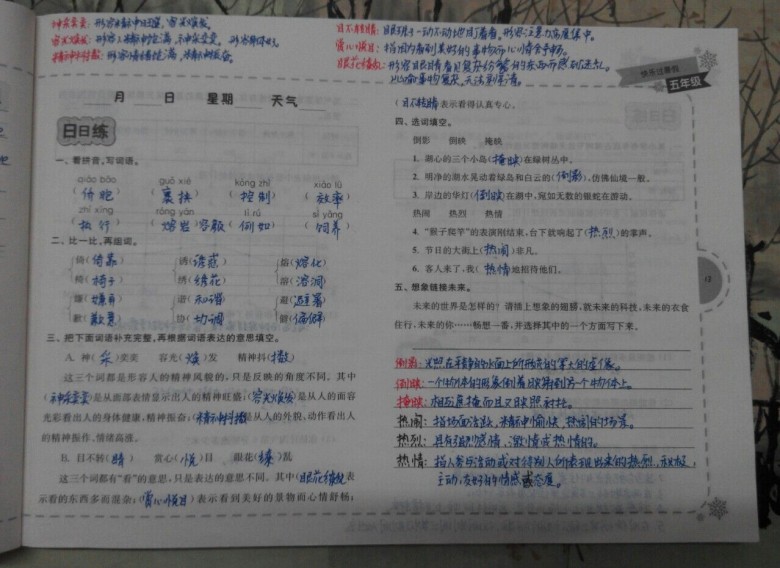 神采奕奕：形容精神旺盛，容光焕发。
精神抖擞：形容情绪饱满，精神振奋。
月 日 星期 天气
日日练
一、看拼音，写词语。
qiáo bāo guǒ xié kòng zhì xiào lǜ
（侨胞） （裹挟） （控制） （效率）
zhí xíng róng yán lì rú sì yǎng
（执行） （熔岩）容貌（例如） （饲养）
二、比一比，再组词。
倚（倚靠） 诱（诱惑） 熔（熔化）
椅（椅子） 绣（绣花） 溶（溶洞）
嫌（嫌弃） 谐（和谐） 避（避暑）
歉（歉意） 协（协调） 僻（偏僻）
三、把下面词语补充完整，再根据词语表达的意思填空。
A. 神（采）奕奕 容光（焕）发 精神抖（擞）
这三个词都是形容人的精神风貌的，只是反映的角度不同。其中
（神采奕奕）是从面部表情显示出人的精神旺盛；（容光焕发）是从人的面容
光彩看出人的身体健康，精神振奋；（精神抖擞）是从人的外貌、动作看出人
的精神振作、情绪高涨。
B. 目不转（睛） 赏心（悦）目 眼花（缭）乱
这三个词都有“看”的意思，只是表达的意思不同。其中（眼花缭乱）表
示看的东西多而混杂；（赏心悦目）表示看到美好的景物而心情舒畅；
目不转睛：眼珠子一动不动地盯着看，形容注意力高度集中。
赏心悦目：指因为看到美好的事物而心情舒畅。
快乐过暑假
五年级
（目不转睛）表示看得认真专心。
四、选词填空。
倒影 倒映 掩映
1. 湖心的三个小岛（掩映）在绿树丛中。
2. 明净的湖水晃动着绿岛和白云的（倒影），仿佛仙境一般。
3. 岸边的华灯（倒映）在湖中，宛如无数的银蛇在游动。
热闹 热烈 热情
4. “猴子爬竿”的表演刚结束，台下就响起了（热烈）的掌声。
5. 节日的大街上（热闹）非凡。
6. 客人来了，我（热情）地招待他们。
五、想象链接未来。
未来的世界是怎样的？请插上想象的翅膀，就未来的科技、未来的衣食
住行、未来的你……畅想一番，并选择其中的一个方面写下来。
倒影：光照在平静的水面上所形成的等大的虚像。
倒映：一个物体的形象倒着投射到另一个物体上。
掩映：相互遮掩而又映照衬托。
热闹：指场面活跃，精神愉快，热闹的场景。
热烈：具有强烈感情，激情或热情的。
热情：指人参与活动或对待别人所表现出来的热烈、积极、
主动、友好的情感或态度。